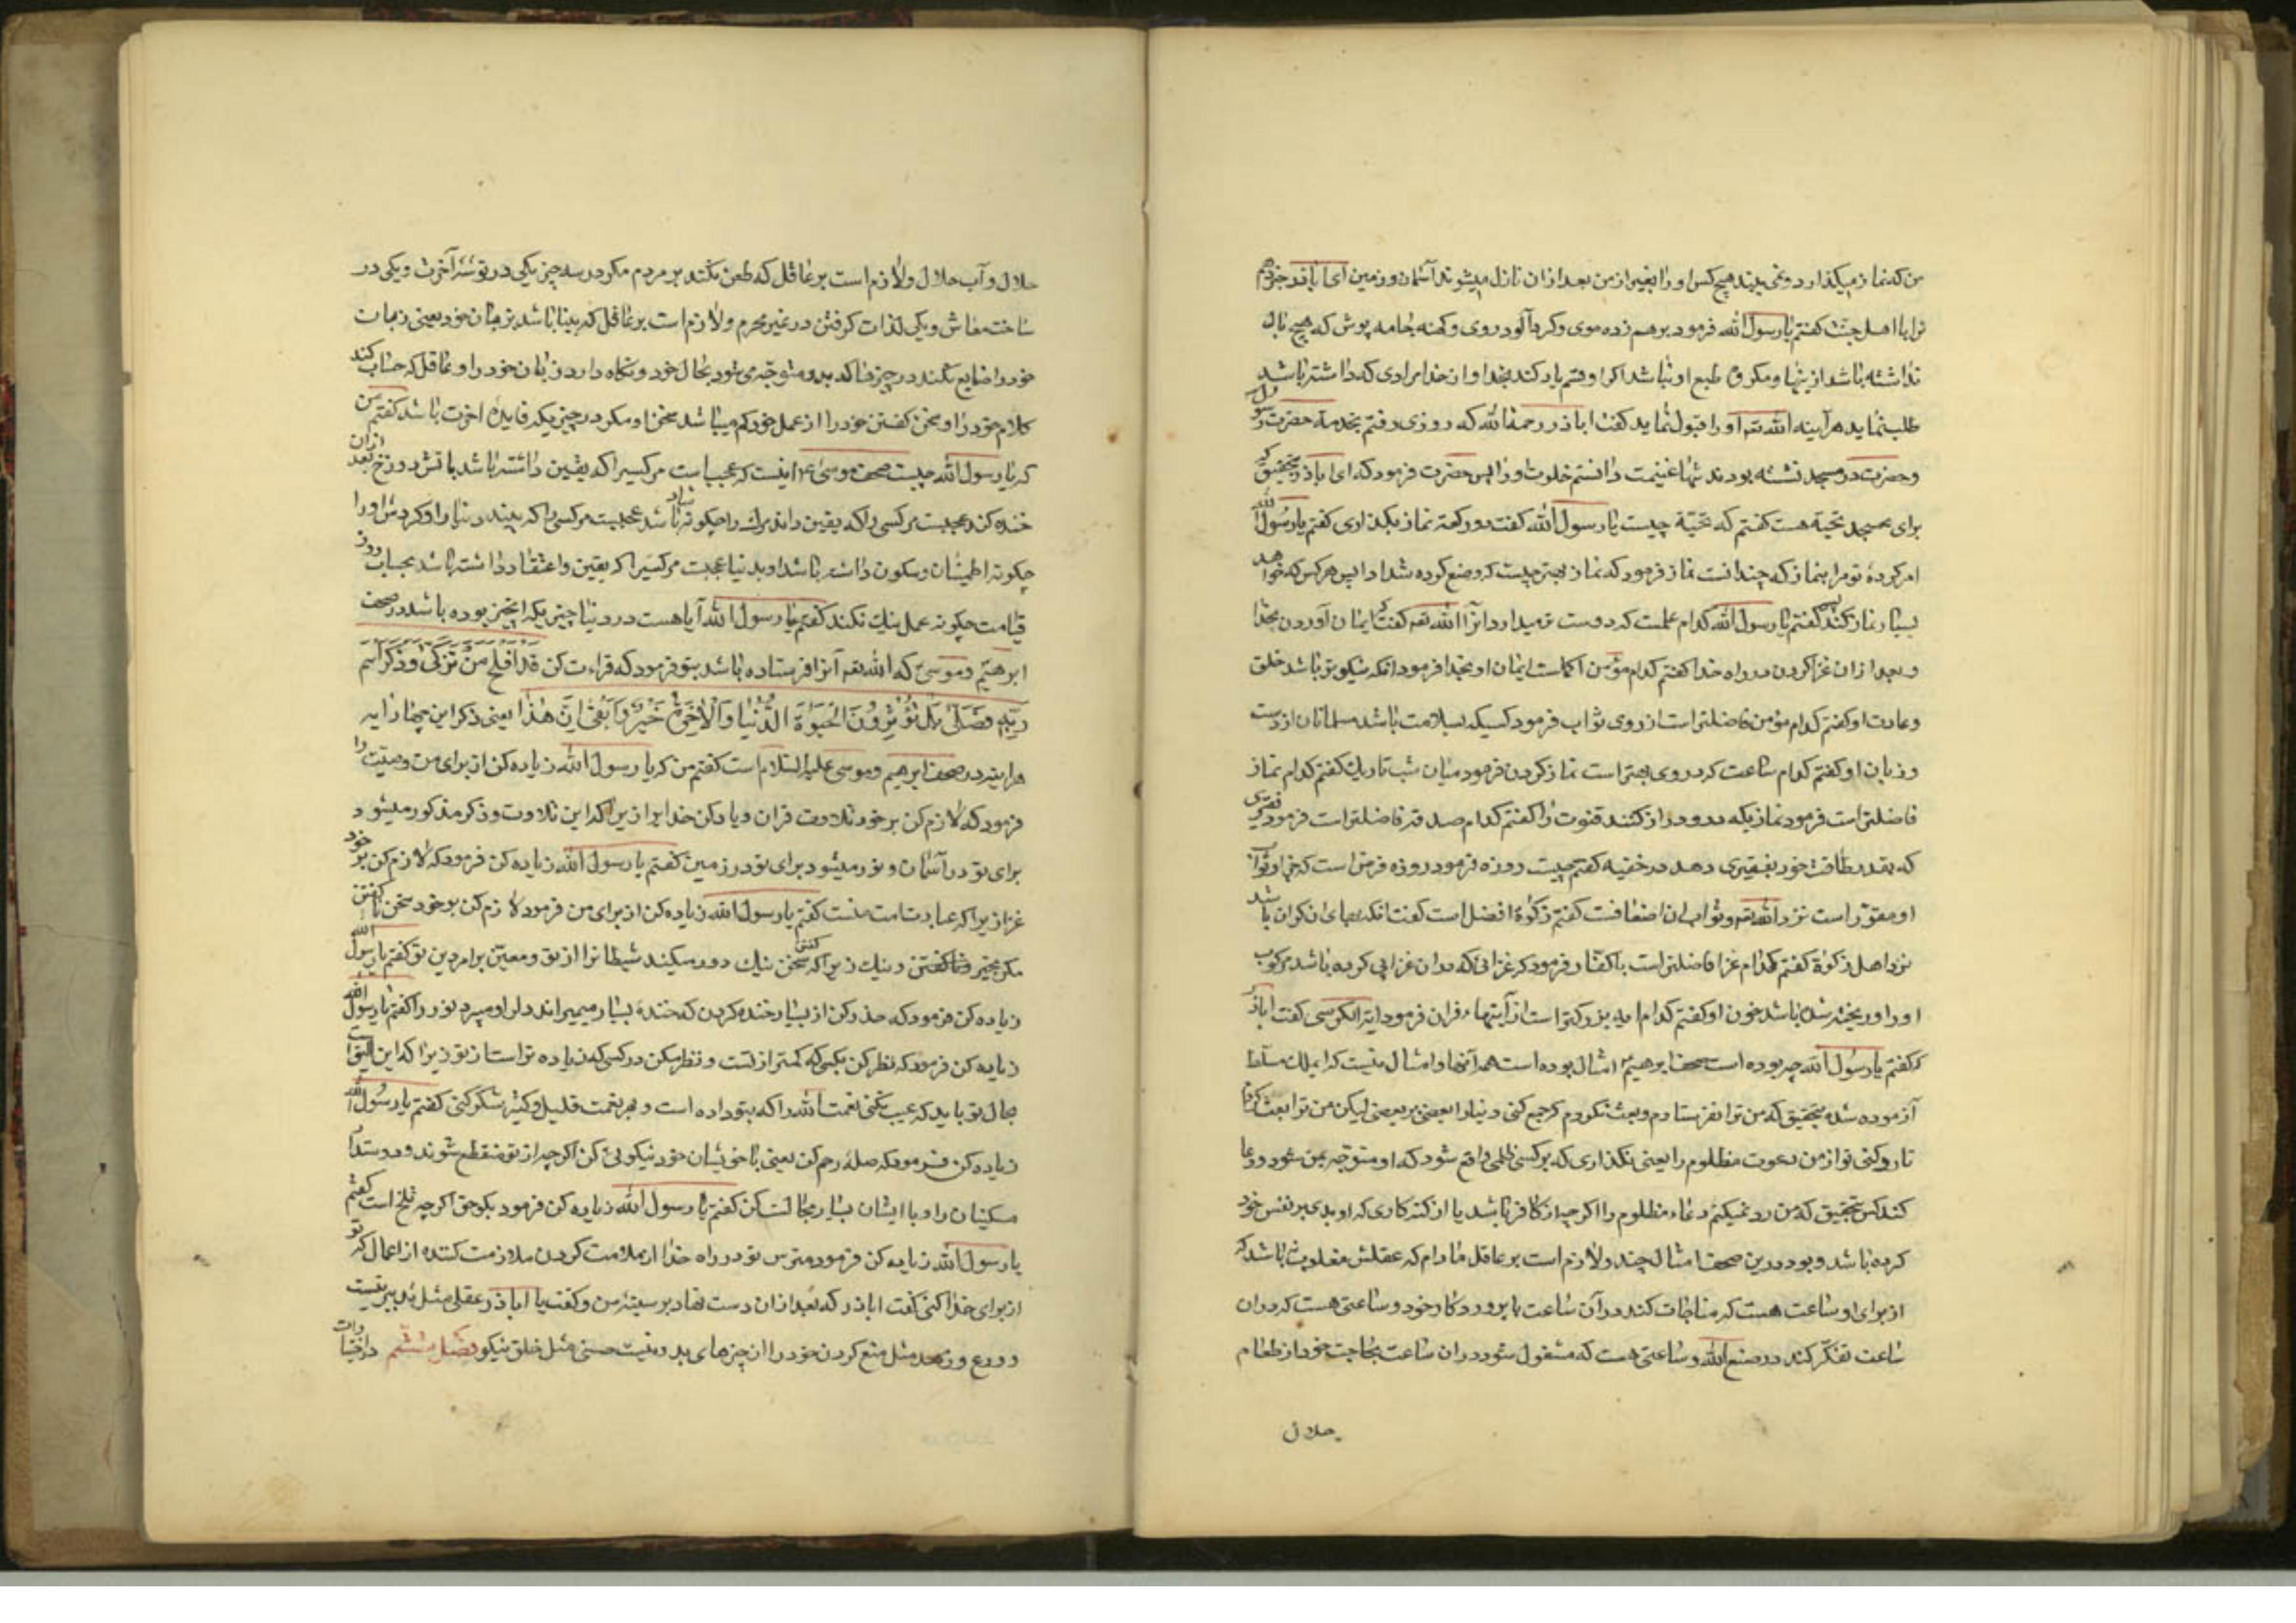 من که نماز میکذارد و نمی بیند هیچ کس او را بغیر از من بعد از ان نازل میشوند آسمان و زمین ای اباذر خبر دهم
ترا با اهل جنت کفتم یا رسول الله فرمود بر هم زده موی و کرد آلود روی و کهنه جامه پوش که هیچ بال
نداشته باشد از ینها و مکر و طبع او نباشد اکر او قسم یاد کند بخدا و از خدا مرادی که داشته باشد
طلب نماید هر آینه الله تع او را قبول نماید کفت اباذر رحمه الله که روزی رفتم بخدمة حضرت رسول
و حضرت در مسجد نشسته بودند تنها غنیمت دانستم خلوت او را پس حضرت فرمود که ای اباذر بتحقیق که
برای مسجد تحیة هست کفتم که تحیّة چیست یا رسول الله کفت دو رکعة نماز بکذاری کفتم یا رسول الله
امر کردۀ تو مرا بنماز که چندانست نماز فرمود که نماز بهتر چیست که وضع کرده شد ادا پس هر کس که خواهد
بسیار نماز کند پس کفتم یا رسول الله کدام عملست که دوست تر میدارد انرا الله تع کفت که ایمان آوردن بخدا
و بعد از ان غزا کردن در راه خدا کفتم کدام مؤمن اکملست ایمان او بخدا فرمود انکه نیکوتر باشد خلق
و عادت او کفتم کدام مؤمن فاضلتر است از روی ثواب فرمود کسیکه بسلامت باشد مسلمانان از دست
و زبان او کفتم کدام ساعت که در وی بهتر است نماز کردن فرمود میان شب تاریک کفتم کدام نماز
فاضلتر است فرمود نمازیکه در و دراز کنند قنوت را کفتم کدام صدقه فاضلتر است فرمود فقیری
که بقدر طاقت خود بفقیری دهد در خفیه کفتم چیست روزه فرمود روزه فرض است که جزا و ثواب
او مقرّر است نزد الله تع و ثواب ان اضعافست کفتم زکوة افضل است کفت انکه بهای ان کران باشد
نزد اهل زکوة کفتم کدام غزا فاضلتر است با کفّار فرمود که غزائی که در ان غزا پی کرده باشد مرکوب
او را و ریخته شده باشد خون او کفتم کدام ایه بزرکتر است از آیتهاء قران فرمود ایة الکرسی کفت اباذر
که کفتم یا رسول الله چه بوده است صحف ابرهیم امثال بوده است همه آنها و امثال نیست که ایملک مسلّط
آزموده شده بتحقیق که من ترا نفرستادم و بعث نکردم که جمع کنی دنیا را بعضی بر بعضی لیکن من ترا بعث کردم
تا رد کنی تو از من دعوت مظلوم را یعنی نکذاری که بر کسی ظلمی واقع شود که او متوجّه بمن شود و دعا
کند پس بتحقیق که من رد نمیکنم دعاء مظلوم را اکر چه از کافر باشد یا از کنه کاری که او بدی بر نفس خود
کرده باشد و بود درین صحف امثال چند و لازم است بر عاقل مادام که عقلش مغلوب نباشد که
از برای او ساعت هست که مناجات کند در آن ساعت با پروردکار خود و ساعتی هست که در ان
ساعت تفکّر کند در صنع الله و ساعتی هست که مشغول شود در ان ساعت بحاجت خود از طعام
حلال
حلال و آب حلال و لازم است بر عاقل که طعن نکند بر مردم مکر در سه چیز یکی در توشه آخرت و یکی در
ساخت معاش و یکی لذات کرفتن در غیر محرم و لازم است بر عاقل که بینا باشد بزمان خود یعنی زمان
خود را ضایع نکند در چیزها که بدو متوجّه می شود بحال خود و نکاه دارد زبان خود را و عاقل که حساب کند
کلام خود را و سخن کفتن خود را از عمل خود کم میباشد سخن او مکر در چیزیکه فایدۀ اخرت باشد کفتم من
که یا رسول الله چیست صحف موسی ع اینست که عجب است مر کسیرا که یقین داشته باشد باتش دوزخ بعد از ان
خنده کند عجبست مر کسی را که یقین داند مرك را چکونه شاد باشد عجبست مر کسی را که بیند دنیا را و کردش او را
چکونه اطمینان و سکون داشته باشد او بدنیا عجبست مر کسیرا که یقین و اعتقاد داشته باشد بحساب روز
قیامت چکونه عمل نیك نکند کفتم یا رسول الله آیا هست در دنیا چیزیکه انچیز بوده باشد در صحف
ابرهیم و موسی که الله تع آنرا فرستاده باشد بتو فرمود که قراءت کن قَدْ أَفْلَحَ مَنْ تَزَكَّىٰ وَذَكَرَ اسْمَ
رَبِّهِ فَصَلَّىٰ بَلْ تُؤْثِرُونَ الْحَيَوٰةَ الدُّنْيَا وَالْآخِرَةُ خَيْرٌ وَأَبْقَىٰ إِنَّ هَٰذَا یعنی ذکر این چهار ایه
هر اینه در صحف ابرهیم و موسی علیه السّلام است کفتم من که یا رسول الله زیاده کن از برای من وصیّت را
فرمود که لازم کن بر خود تلاوت قران و یاد کن خدایرا زیرا که این تلاوت و ذکر مذکور میشود
برای تو در آسمان و نور میشود برای تو در زمین کفتم یا رسول الله زیاده کن فرمود که لازم کن بر خود
غزا زیرا که عبادت امت منست کفتم یا رسول الله زیاده کن از برای من فرمود لازم کن بر خود سخن ناکفتن
مکر بخیر و ناکفتن و نیك زیرا که سخن کفتن نیك دور میکند شیطانرا از تو و معین بر امر دین تو کفتم یا رسول الله
زیاده کن فرمود که حذر کن از بسیار خنده کردن که خندۀ بسیار میمیراند دلرا و میبرد نور را کفتم یا رسول الله
زیاده کن فرمود که نظر کن بکسی که کمتر از تست و نظر مکن در کسی که زیاده تر است از تو زیرا که این الیق است
بحال تو باید که عیب نکنی نعمت الله را که بتو داده است و بهر نعمت قلیل و کثیر شکر کنی کفتم یا رسول الله
زیاده کن فرمود که صله رحم کن یعنی با خویشان خود نیکویی کن اکر چه از تو منقطع شوند و دوست دار
مسکینان را و با ایشان بسیار مجالست کن کفتم یا رسول الله زیاده کن فرمود بکو حق اکر چه تلخ است کفتم
یا رسول الله زیاده کن فرمود مترس تو در راه خدا از ملامت کردن ملامت کننده از اعمال که تو
از برای خدا کنی کفت اباذر که بعد از ان دست نهاد بر سینۀ من و کفت یا اباذر عقلی مثل تدبیر نیست
و ورع و زهد مثل منع کردن خود را از چیزهای بد و نیست حسنی مثل خلق نیکو فصل ششم در اختیارات